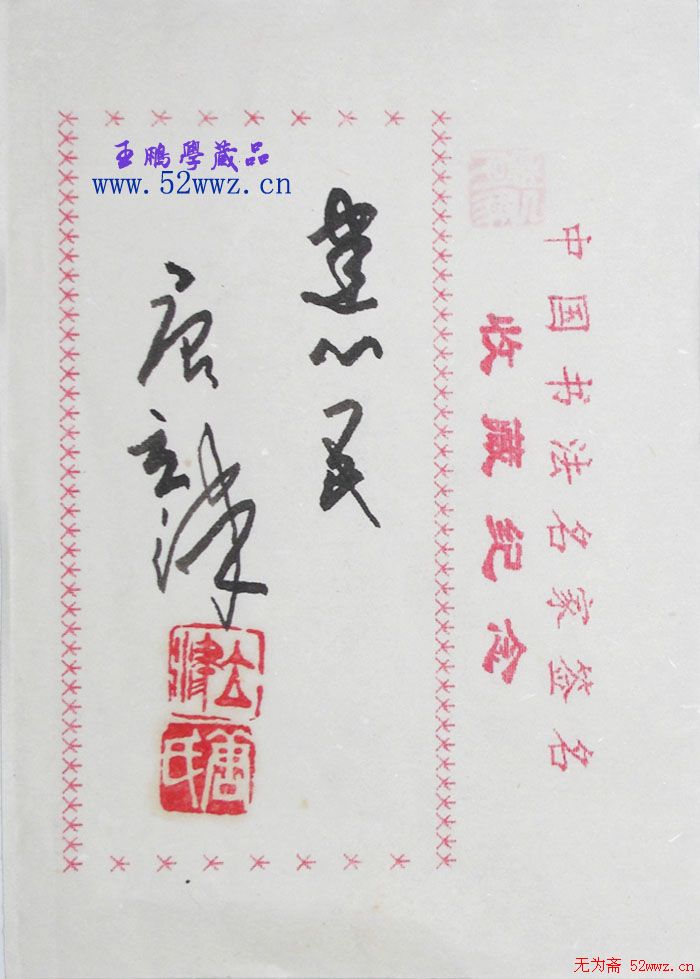 王鹏學藏品
www.52wwz.cn
中国书法名家签名
收藏纪念
唐立津
立津
唐氏
无为斋 52wwz.cn